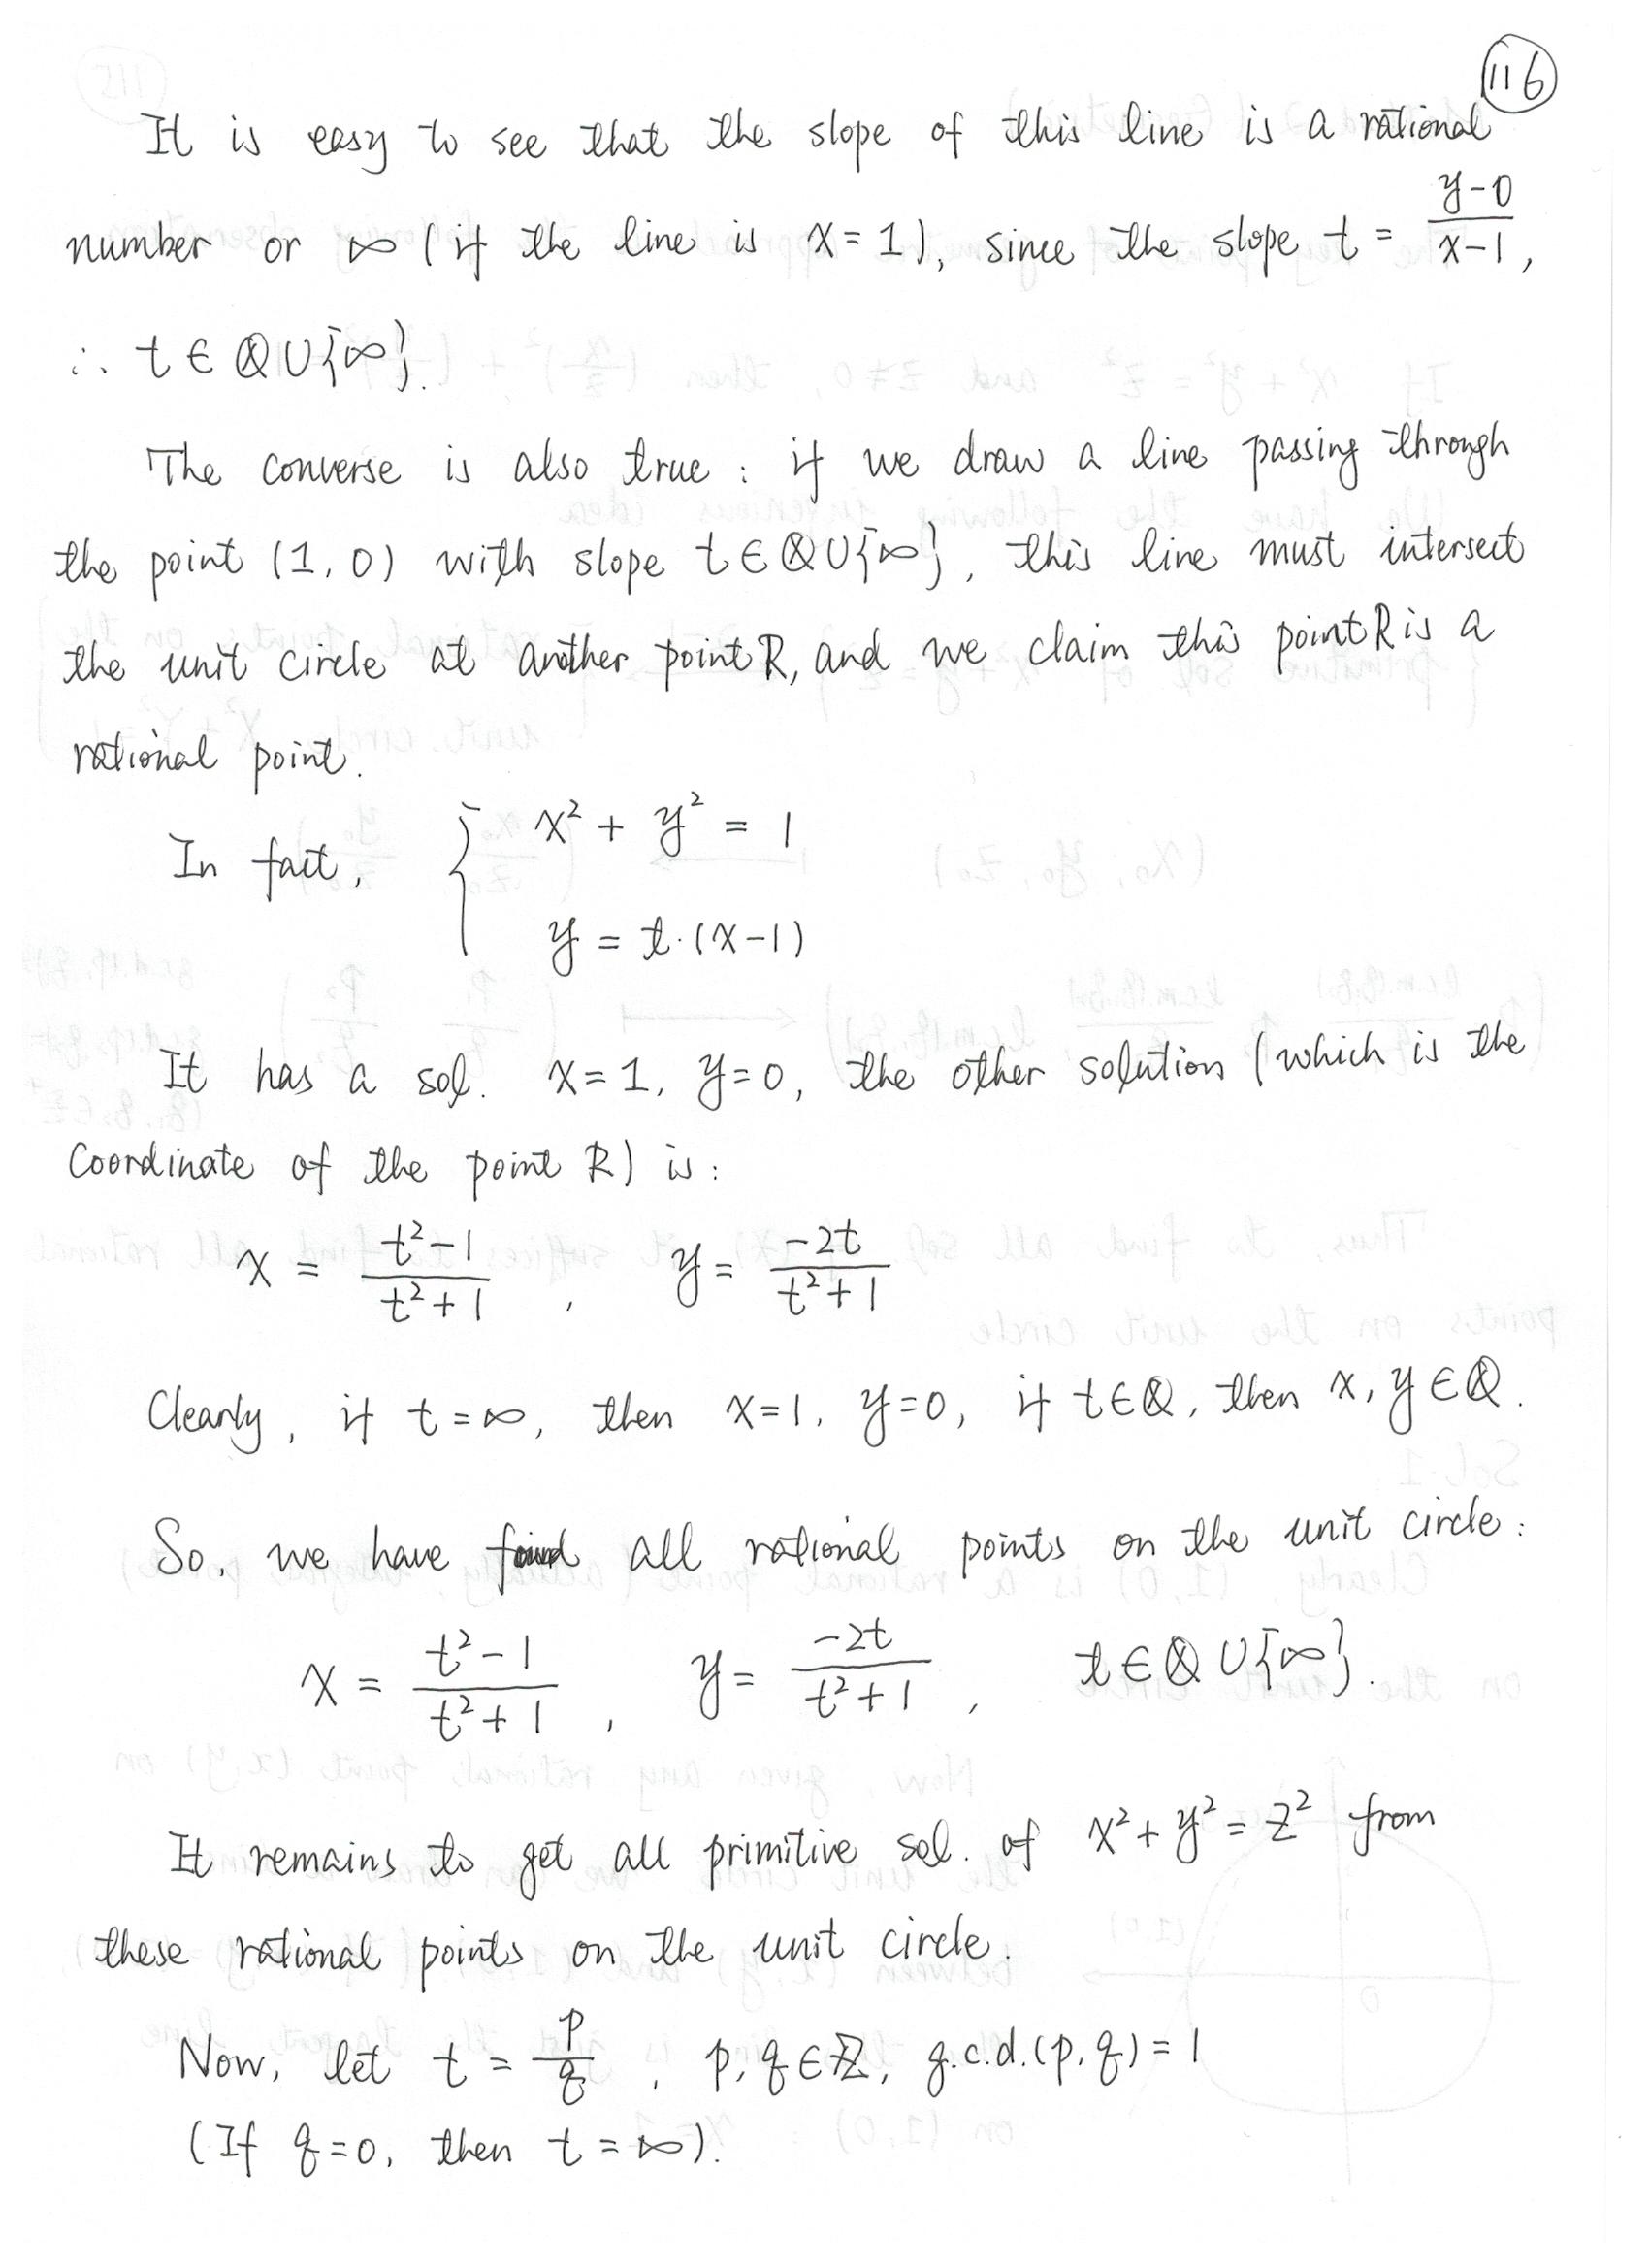 116
It is easy to see that the slope of this line is a rational
number or ∞ (if the line is x = 1), since the slope t = \frac{y-0}{x-1},
∴ t ∈ ℚ∪{∞}.
The converse is also true : if we draw a line passing through
the point (1, 0) with slope t ∈ ℚ∪{∞}, this line must intersect
the unit circle at another point R, and we claim this point R is a
rational point.
In fact, { x² + y² = 1
y = t·(x-1)
It has a sol. x = 1, y = 0, the other solution (which is the
Coordinate of the point R) is :
x = \frac{t²-1}{t²+1}, y = \frac{-2t}{t²+1}
Clearly, if t = ∞, then x = 1, y = 0, if t ∈ ℚ, then x, y ∈ ℚ.
So, we have found all rational points on the unit circle :
x = \frac{t²-1}{t²+1}, y = \frac{-2t}{t²+1}, t ∈ ℚ∪{∞}.
It remains to get all primitive sol. of x² + y² = z² from
these rational points on the unit circle.
Now, let t = \frac{p}{q}, p, q ∈ ℤ, g.c.d.(p, q) = 1
(If q = 0, then t = ∞).